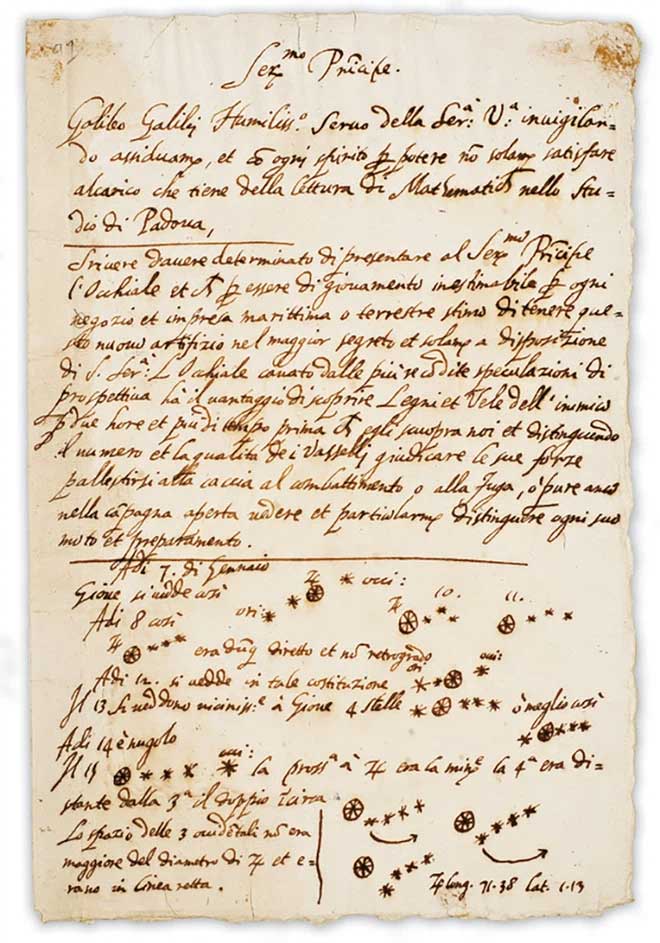 Ser.mo Prĩcipe.
Galileo Galilej Humiliss.o Seruo della Ser.a V.a inuigilan-
do assiduam.e, et cõ ogni spirito p potere nõ solam.e satisfare
alcarico che tiene della lettura di Mathematich nello Stu-
dio di Padoua,
Scriuere dauere determinato di presentare al Ser.mo Prĩcipe
l'Occhiale et ch p essere di giouamento inestimabile p ogni
negozio et impresa marittima o terrestre stimo di tenere que-
sto nuouo artifizio nel maggior segreto et solam.e a disposizione
di S. Ser.a L'Occhiale cauato dalle più recõdite speculazioni di
prospettiua hà il uantaggio di scoprire Legni et Vele dell'inimico
p due hore et piu di tempo prima ch egli scuopra noi et distinguendo
il numero et la qualità de i Vasselli giudicare le sue forze
pallestirsi alla caccia al combattimento o alla fuga, o pure anco
nella cãpagna aperta uedere et particolarm.e distinguere ogni suo
moto et preparamento.
Adi 7. di Gennaio
Gioue si uedde così ♃ * occi:
Adi 8 così ori: ♃ 10. 11.
♃ era dũq diretto et nõ retrogrado
Adi 12. si uedde in tale costituzione ori occi:
Il 13 si ueddono uiciniss.e à Gioue 4 stelle ò meglio così
Adi 14 è nugolo
Il 15 occi: la pross.a à ♃ era la min.e la 4.a era di-
stante dalla 3.a il doppio ĩcirca
Lo spazio delle 3 occidẽtali nõ era
maggiore del diametro di ♃ et e-
rano in linea retta.
♃ long. 71.38 Lat. 1.13